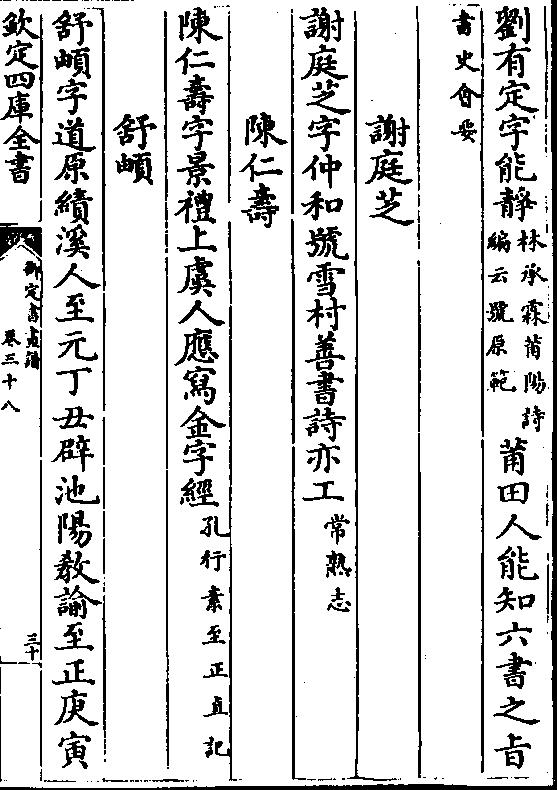 劉有定字能靜林承霖莆陽詩編云號原範莆田人能知六書之㫖
書史會要
謝庭芝
謝庭芝字仲和號雪村善書詩亦工常熟志
陳仁壽
陳仁壽字景禮上虞人應寫金字經孔行素至正直記
舒頔
舒頔字道原績溪人至元丁丑辟池陽教諭至正庚寅
欽定四庫全書
御定書畫譜
卷三十八
三十